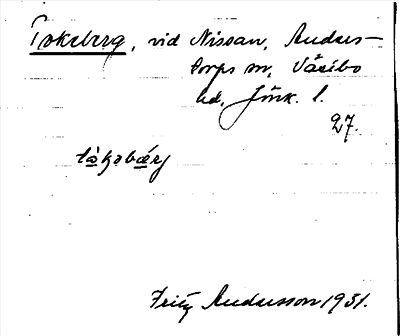 Tokaberg, vid Nissan, Anders-
torps sn, Västbo
hd, Jönk. l.
27.
tåkabärj
Fritz Andersson 1931.